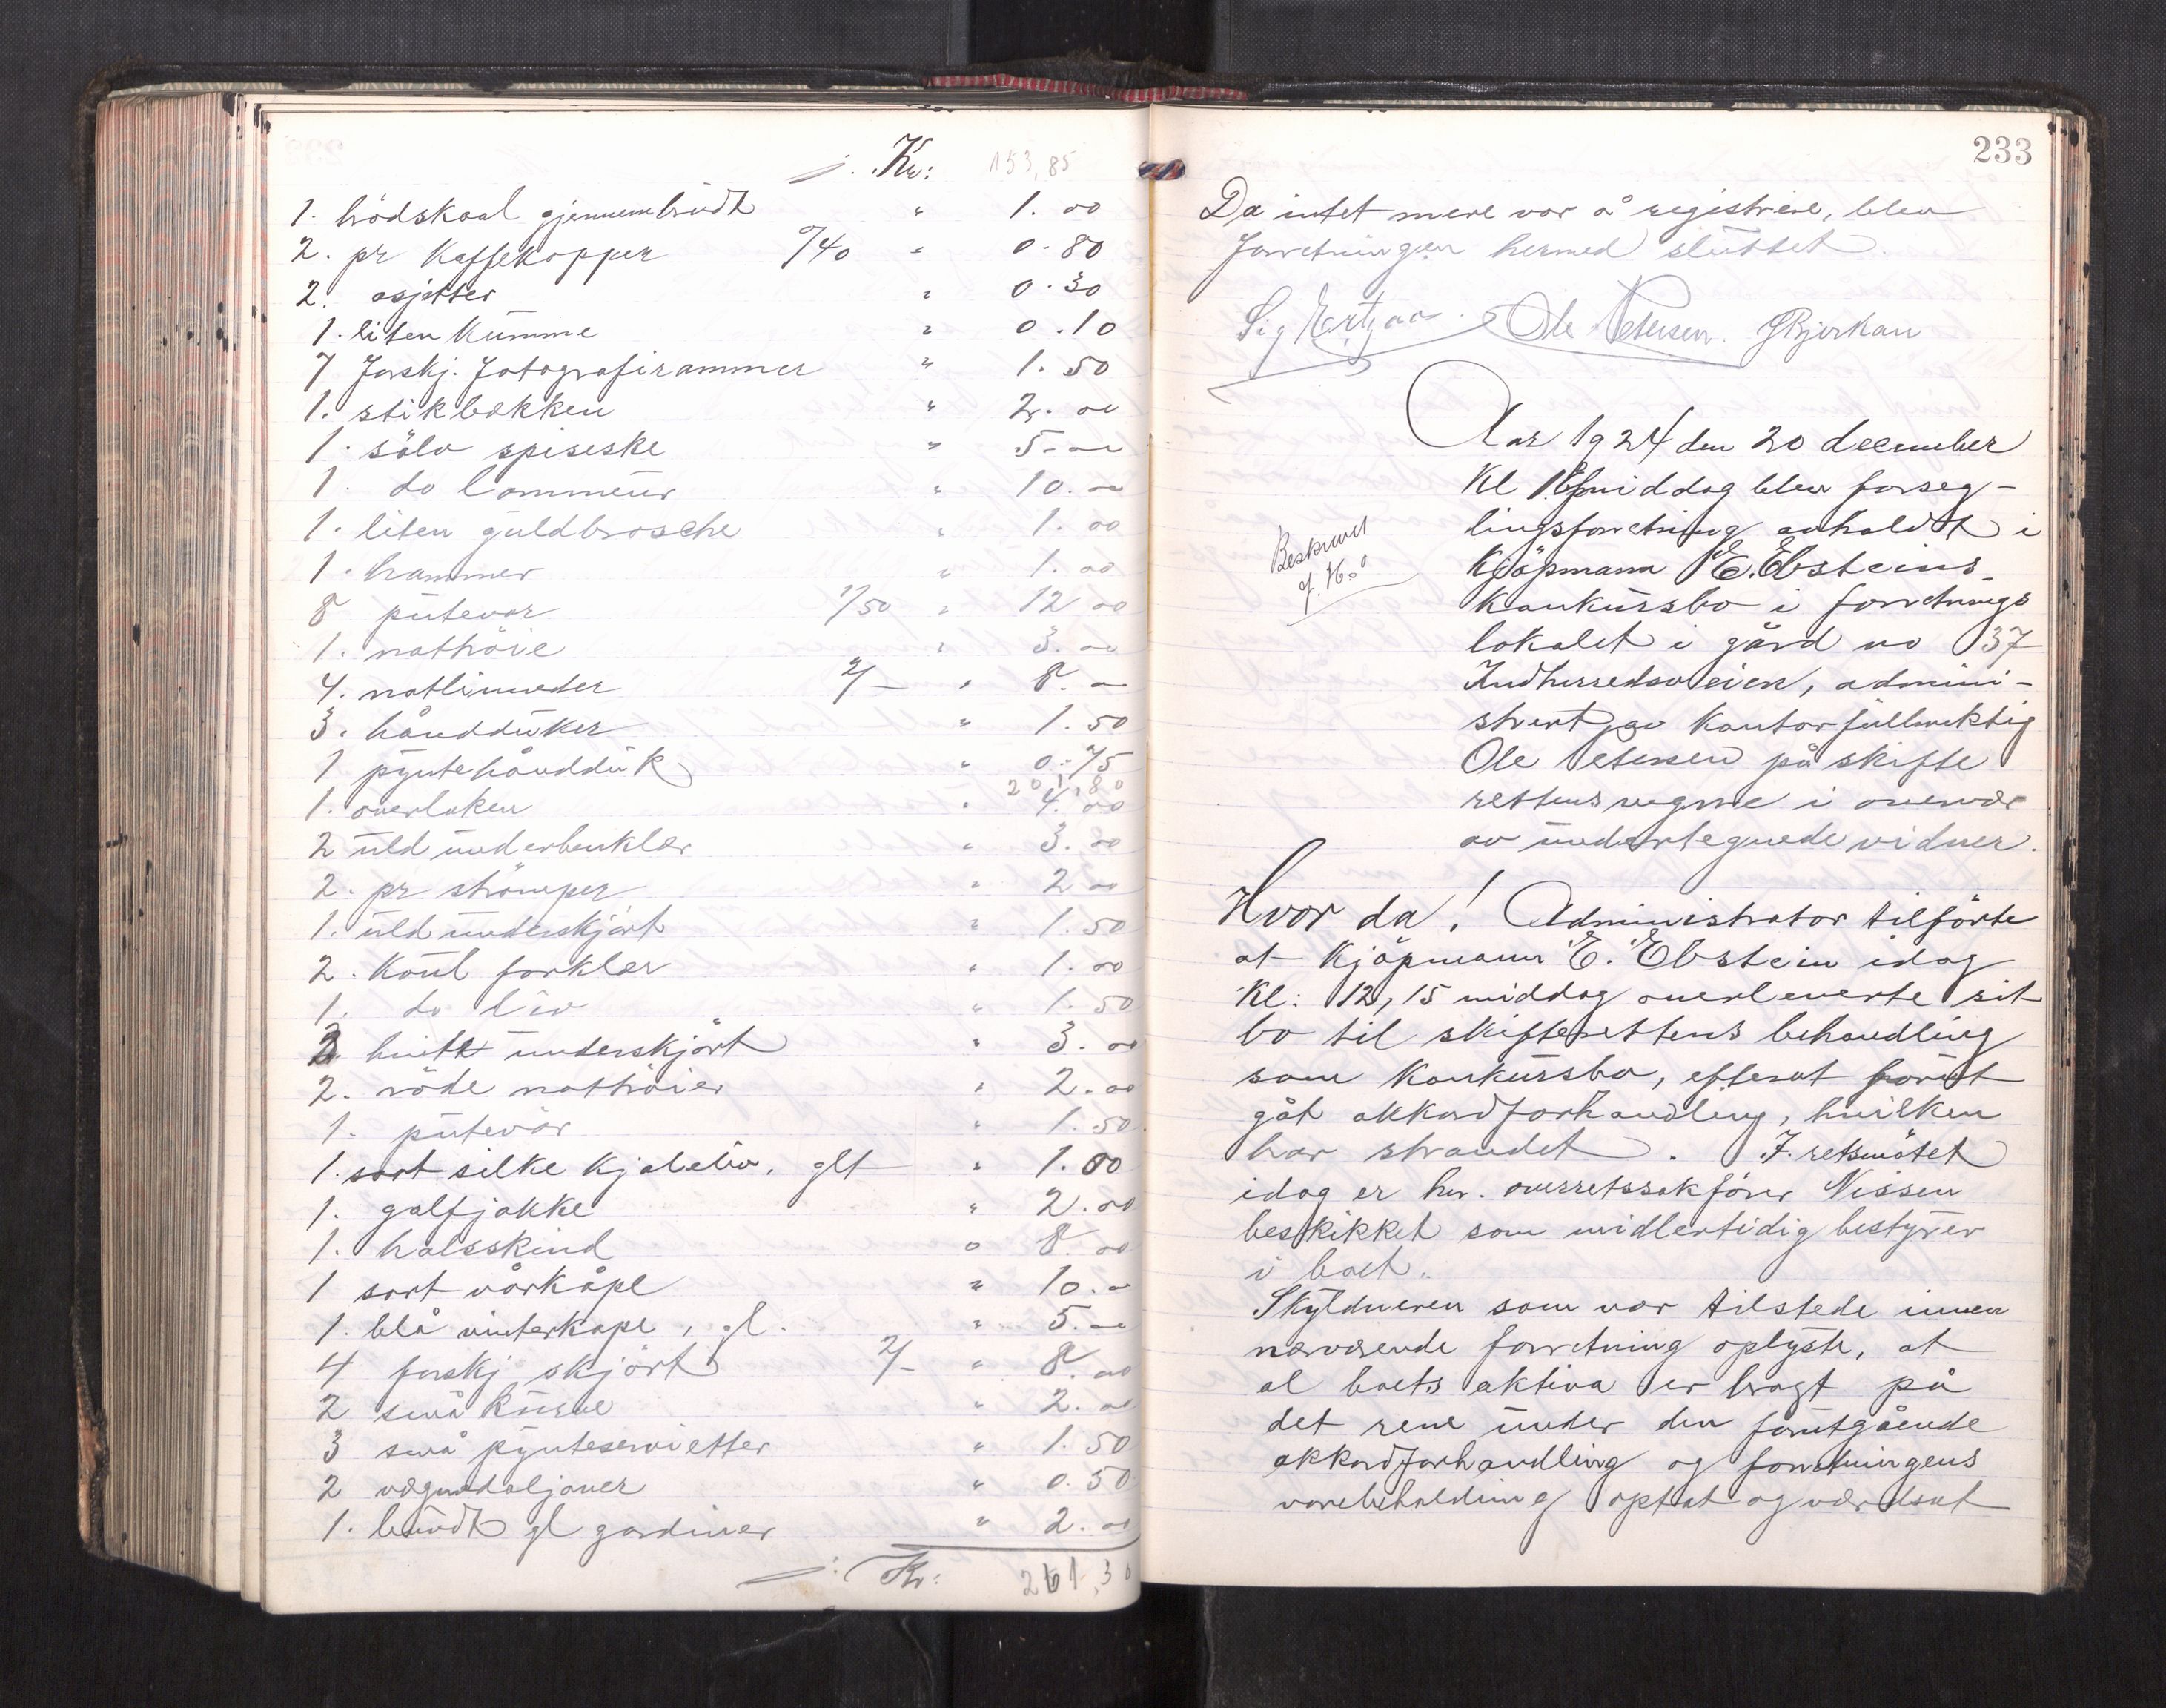 j. Kr: 153,85
1. brödskaal gjennembrudt " 1.00
2. pr kaffekopper 0/40 " 0.80
2. asjetter " 0.30
1. liten kumme " 0.10
7 forskj. fotografirammer " 1.50
1. stikbækken " 2.00
1. sölv spiseske " 5.00
1. do lommeur " 10.00
1. liten guldbrosche " 1.00
1. hammer " 1.00
8 putevar 1/50 " 12.00
1. nattröie " 3.00
4. natlinneder 2/- " 8.00
3. hånddüker " 1.50
1 pyntehåndduk " 0.75
201,80
1. overlaken " 4.00
2 uld underbenklær " 3.00
2. pr strömper " 2.00
1. uld underskjört " 1.50
2. koul forklær " 1.00
1. do liv " 1.50
2. hvitt underskjört " 3.00
2. röde nattröier " 2.00
1. putevar " 1.50
1. sort silke kjoleliv, glt " 1.00
1. golfjakke " 2.00
1. halsskind " 8.00
1 sort vårkåpe " 10.00
1. blå vinterkåpe, gl. " 5.00
4 forskj. skjört 2/- " 8.00
2 små kurve " 2.00
3 små pynteservietter " 1.50
2 vægmedaljoner " 0.50
1. bundt gl gardiner " 2.00
j: Kr: 261,30
233
Da intet mere var å registrere, blev
forretningen hermed sluttet.
Sig Ole Petersen. Bjerkan
Aar 1924 den 20 december
Kl middag blev forseg-
lingsforretning avholdt i
Kjöpmann E. Ebsteins
konkursbo i forretnings
lokalet i gård no 37
Indherredsveien, admini-
strert av kontorfullmektig
Ole Petersen på skifte
rettens vegne i overvær
av undertegnede vidner.
Beskrevet
Hvor da! Administrator tilförte
at Kjöpmann E. Ebstein idag
Kl: 12,15 middag overleverte sit
bo til skifterettens behandling
som konkursbo, efterat forut
gåt akkordforhandling, hvilken
har strandet. I retsmötet
idag er hr. overretssakförer Nissen
beskikket som midlertidig bestyrer
i boet.
Skyldneren som var tilstede innen
nærværende forretning oplyste, at
al boets aktiva er bragt på
det rene under den forutgående
akkordforhandling og forretningens
varebeholdning optat og verdsat